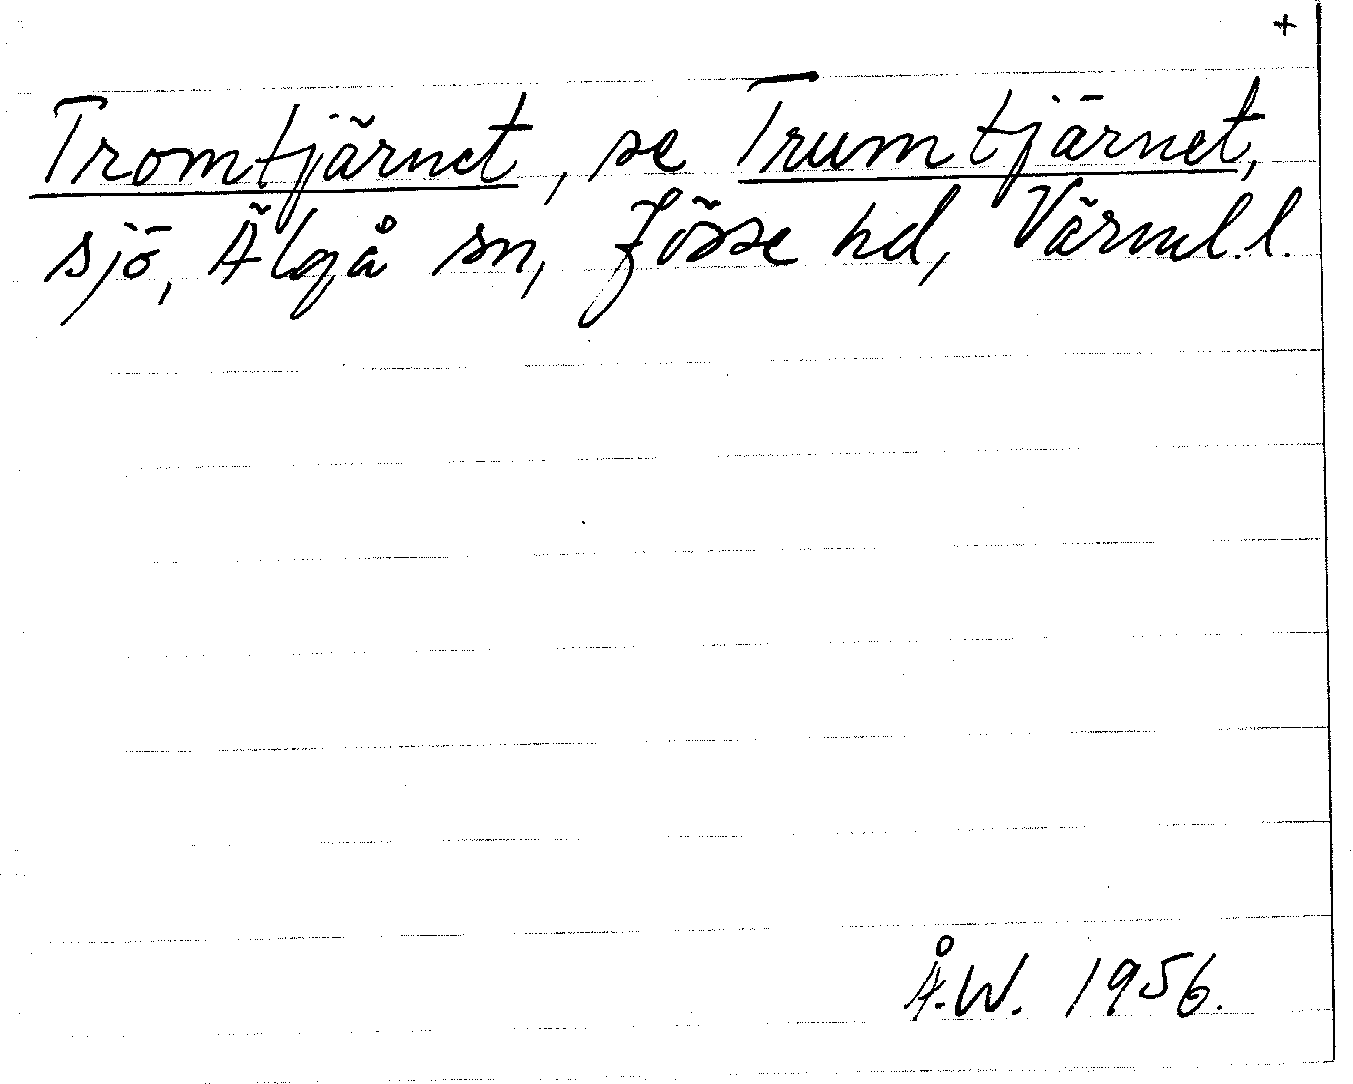 +
Tromtjärnet, se Trumtjärnet,
sjö, Älgå sn, Jösse hd, Värml. l.
Å.W. 1956.